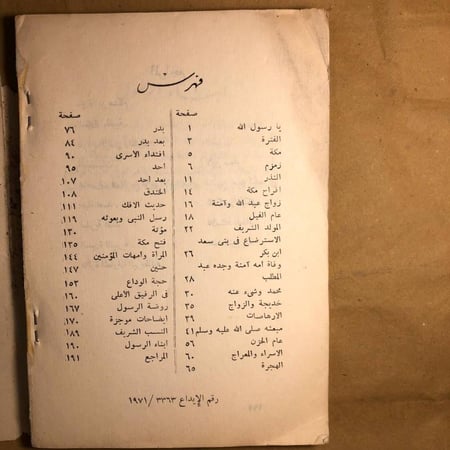 فهرس
صفحة
يا رسول الله ١
الفترة ٣
مكة ٥
زمزم ٦
النذر ١١
افراح مكة ١٤
زواج عبد الله وآمنة ١٦
عام الفيل ١٨
المولد الشريف ٢٢
الاسترضاع فى بنى سعد
ابن بكر ٢٦
وفاة امه آمنة وجده عبد
المطلب ٢٨
محمد وشىء عنه ٣٠
خديجة والزواج ٣٥
الارهاصات ٣٩
مبعثه صلى الله عليه وسلم ٤١
عام الحزن ٥٦
الاسراء والمعراج ٦٠
الهجرة ٦٥
صفحة
بدر ٧٦
بعد بدر ٨٤
افتداء الاسرى ٩٠
احد ٩٥
بعد احد ١٠٧
الخندق ١٠٨
حديث الافك ١١١
رسل النبى وبعوثه ١١٩
مؤتة ١٣٠
فتح مكة ١٣٥
المرأة وامهات المؤمنين ١٤٤
حنين ١٤٧
حجة الوداع ١٥٣
فى الرفيق الاعلى ١٦٠
روضة الرسول ١٦٧
ايضاحات موجزة ١٧٠
النسب الشريف ١٨٩
ابناء الرسول ١٩٠
المراجع ١٩١
رقم الإيداع ٣٣٦٣ / ١٩٧١